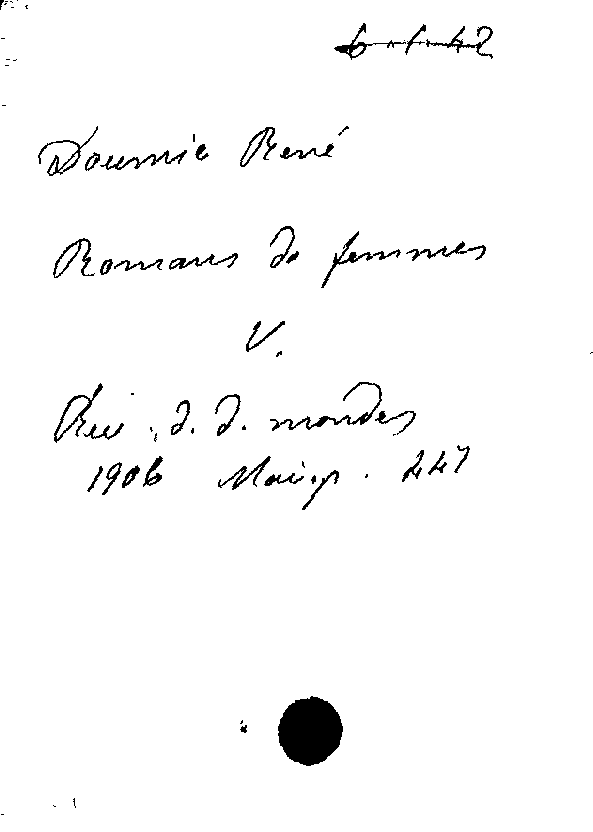 6.1.42
Doumic René
Romans de femmes
V.
Rev. d. d. mondes
1906 Mai p. 447